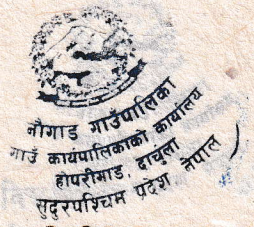 नौगाड गाउँपालिका
गाउँ कार्यपालिकाको कार्यालय
होपरीगाड, दार्चुला
सुदुरपश्चिम प्रदेश नेपाल